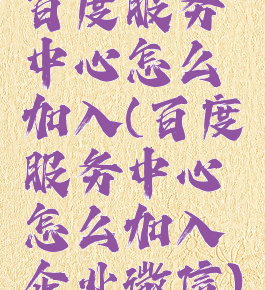 百度服务
中心怎么
加入(百度
服务中心
怎么加入
企业微信)